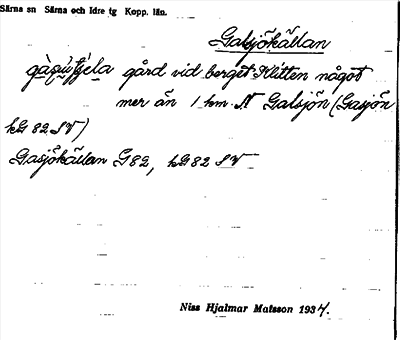 Särna sn Särna och Idre tg Kopp. län.
Galsjökällan
gård vid berget Klitten något
mer än 1 km N Galsjön (Gasjön
kG 82 SV)
Gasjökällan G82, kG82 SV
Niss Hjalmar Matsson 1934.